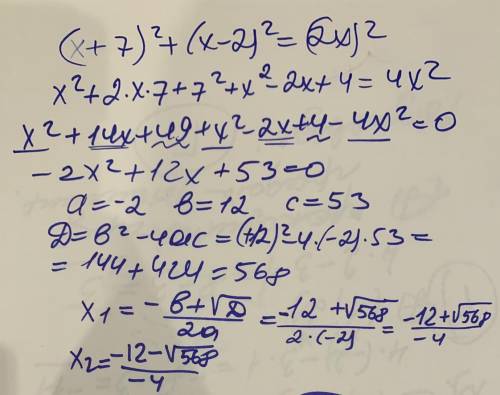 (x+7)²+(x-2)²=(2x)²
x²+2·x·7+7²+x²-2x+4=4x²
x²+14x+49+x²-2x+4-4x²=0
-2x²+12x+53=0
a=-2 b=12 c=53
D=b²-4ac=(+12)²-4·(-2)·53=
=144+424=568
x₁=(-b+√D)/2a=(-12+√568)/(2·(-2))=(-12+√568)/-4
x₂=(-12-√568)/-4